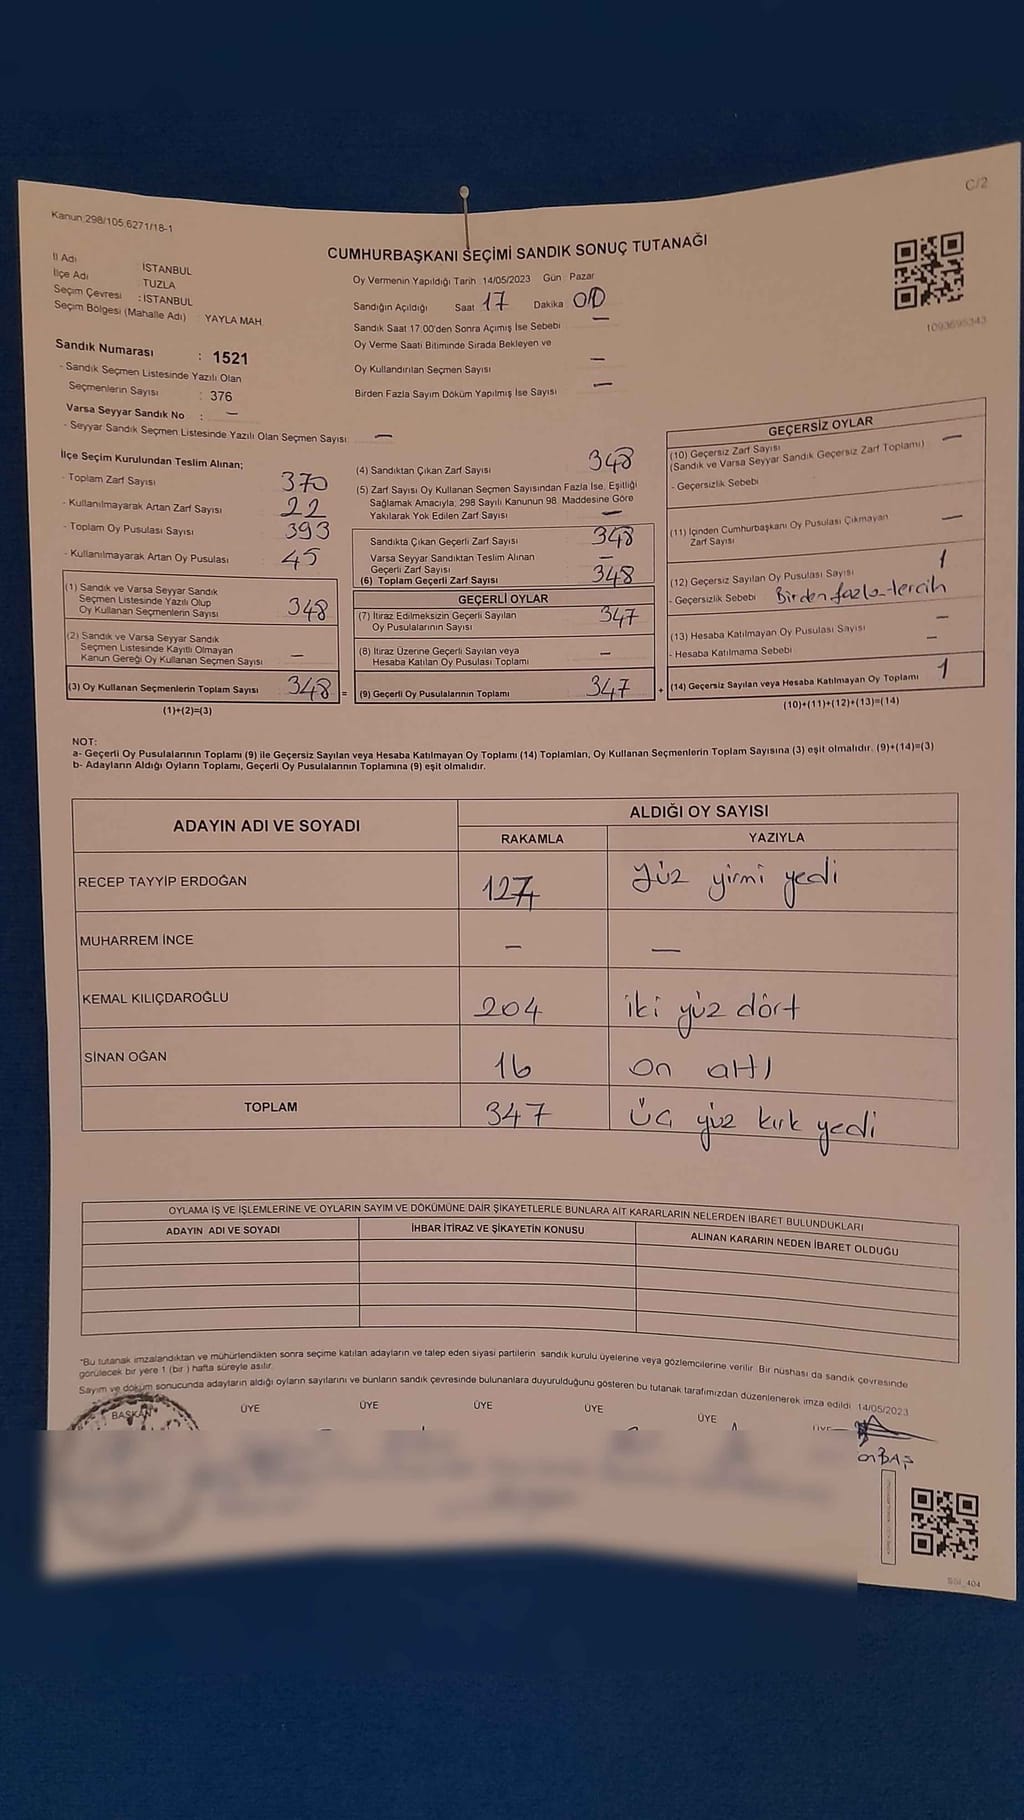 C/2
Kanun:298/105,6271/18-1
CUMHURBAŞKANI SEÇİMİ SANDIK SONUÇ TUTANAĞI
İl Adı İSTANBUL
İlçe Adı TUZLA
Seçim Çevresi : İSTANBUL
Seçim Bölgesi (Mahalle Adı) YAYLA MAH
Oy Vermenin Yapıldığı Tarih 14/05/2023 Gün Pazar
Sandığın Açıldığı Saat 17 Dakika 00
Sandık Saat 17:00'den Sonra Açımış İse Sebebi —
Oy Verme Saati Bitiminde Sırada Bekleyen ve
Oy Kullandırılan Seçmen Sayısı —
Birden Fazla Sayım Döküm Yapılmış İse Sayısı —
1093695343
Sandık Numarası : 1521
- Sandık Seçmen Listesinde Yazılı Olan
Seçmenlerin Sayısı : 376
Varsa Seyyar Sandık No : —
- Seyyar Sandık Seçmen Listesinde Yazılı Olan Seçmen Sayısı —
İlçe Seçim Kurulundan Teslim Alınan;
- Toplam Zarf Sayısı 370
- Kullanılmayarak Artan Zarf Sayısı 22
- Toplam Oy Pusulası Sayısı 393
- Kullanılmayarak Artan Oy Pusulası 45
(1) Sandık ve Varsa Seyyar Sandık
Seçmen Listesinde Yazılı Olup
Oy Kullanan Seçmenlerin Sayısı 348
(2) Sandık ve Varsa Seyyar Sandık
Seçmen Listesinde Kayıtlı Olmayan
Kanun Gereği Oy Kullanan Seçmen Sayısı —
(3) Oy Kullanan Seçmenlerin Toplam Sayısı 348 =
(1)+(2)=(3)
(4) Sandıktan Çıkan Zarf Sayısı 348
(5) Zarf Sayısı Oy Kullanan Seçmen Sayısından Fazla İse, Eşitliği
Sağlamak Amacıyla, 298 Sayılı Kanunun 98. Maddesine Göre
Yakılarak Yok Edilen Zarf Sayısı —
Sandıkta Çıkan Geçerli Zarf Sayısı 348
Varsa Seyyar Sandıktan Teslim Alınan
Geçerli Zarf Sayısı —
(6) Toplam Geçerli Zarf Sayısı 348
GEÇERLİ OYLAR
(7) İtiraz Edilmeksizin Geçerli Sayılan
Oy Pusulalarının Sayısı 347
(8) İtiraz Üzerine Geçerli Sayılan veya
Hesaba Katılan Oy Pusulaları Toplamı —
(9) Geçerli Oy Pusulalarının Toplamı 347 +
GEÇERSİZ OYLAR
(10) Geçersiz Zarf Sayısı
(Sandık ve Varsa Seyyar Sandık Geçersiz Zarf Toplamı) —
- Geçersizlik Sebebi
(11) İçinden Cumhurbaşkanı Oy Pusulası Çıkmayan
Zarf Sayısı —
(12) Geçersiz Sayılan Oy Pusulası Sayısı 1
- Geçersizlik Sebebi Birden fazla tercih
(13) Hesaba Katılmayan Oy Pusulası Sayısı —
- Hesaba Katılmama Sebebi —
(14) Geçersiz Sayılan veya Hesaba Katılmayan Oy Toplamı 1
(10)+(11)+(12)+(13)=(14)
NOT:
a- Geçerli Oy Pusulalarının Toplamı (9) ile Geçersiz Sayılan veya Hesaba Katılmayan Oy Toplamı (14) Toplamları, Oy Kullanan Seçmenlerin Toplam Sayısına (3) eşit olmalıdır. (9)+(14)=(3)
b- Adayların Aldığı Oyların Toplamı, Geçerli Oy Pusulalarının Toplamına (9) eşit olmalıdır.
ADAYIN ADI VE SOYADI ALDIĞI OY SAYISI
RAKAMLA YAZIYLA
RECEP TAYYİP ERDOĞAN 127 yüz yirmi yedi
MUHARREM İNCE — —
KEMAL KILIÇDAROĞLU 204 iki yüz dört
SİNAN OĞAN 16 on altı
TOPLAM 347 üç yüz kırk yedi
OYLAMA İŞ VE İŞLEMLERİNE VE OYLARIN SAYIM VE DÖKÜMÜNE DAİR ŞİKAYETLERLE BUNLARA AİT KARARLARIN NELERDEN İBARET BULUNDUKLARI
ADAYIN ADI VE SOYADI İHBAR İTİRAZ VE ŞİKAYETİN KONUSU ALINAN KARARIN NEDEN İBARET OLDUĞU
"Bu tutanak imzalandıktan ve mühürlendikten sonra seçime katılan adayların ve talep eden siyasi partilerin sandık kurulu üyelerine veya gözlemcilerine verilir. Bir nüshası da sandık çevresinde
görülecek bir yere 1 (bir ) hafta süreyle asılır.
Sayım ve döküm sonucunda adayların aldığı oyların sayılarını ve bunların sandık çevresinde bulunanlara duyurulduğunu gösteren bu tutanak tarafımızdan düzenlenerek imza edildi 14/05/2023
BAŞKAN ÜYE ÜYE ÜYE ÜYE ÜYE ÜYE
404